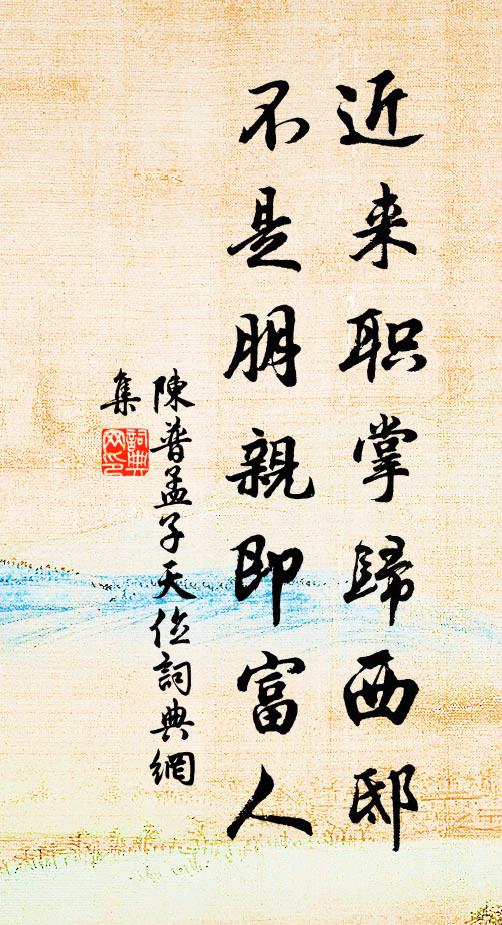 近来职掌歸西邸
不是朋親即富人
陳普孟子天位詞典網
集
詞典网印